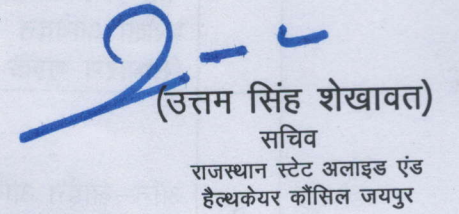 (उत्तम सिंह शेखावत)
सचिव
राजस्थान स्टेट अलाइड एंड
हैल्थकेयर कौंसिल जयपुर